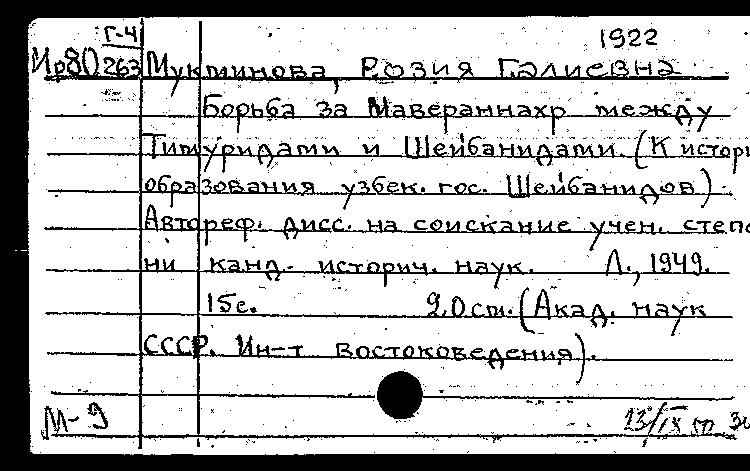 Г-4 1922
Ир80263 Мукминова, Розия Галиевна
Борьба за Мавераннахр между
Тимуридами и Шейбанидами. (К истори
образования узбек. гос. Шейбанидов).
Автореф. дисс. на соискание учен. степе
ни канд. историч. наук. Л., 1949.
15с. 20 см. (Акад. наук
СССР. Ин-т востоковедения).
М-9 13/IX